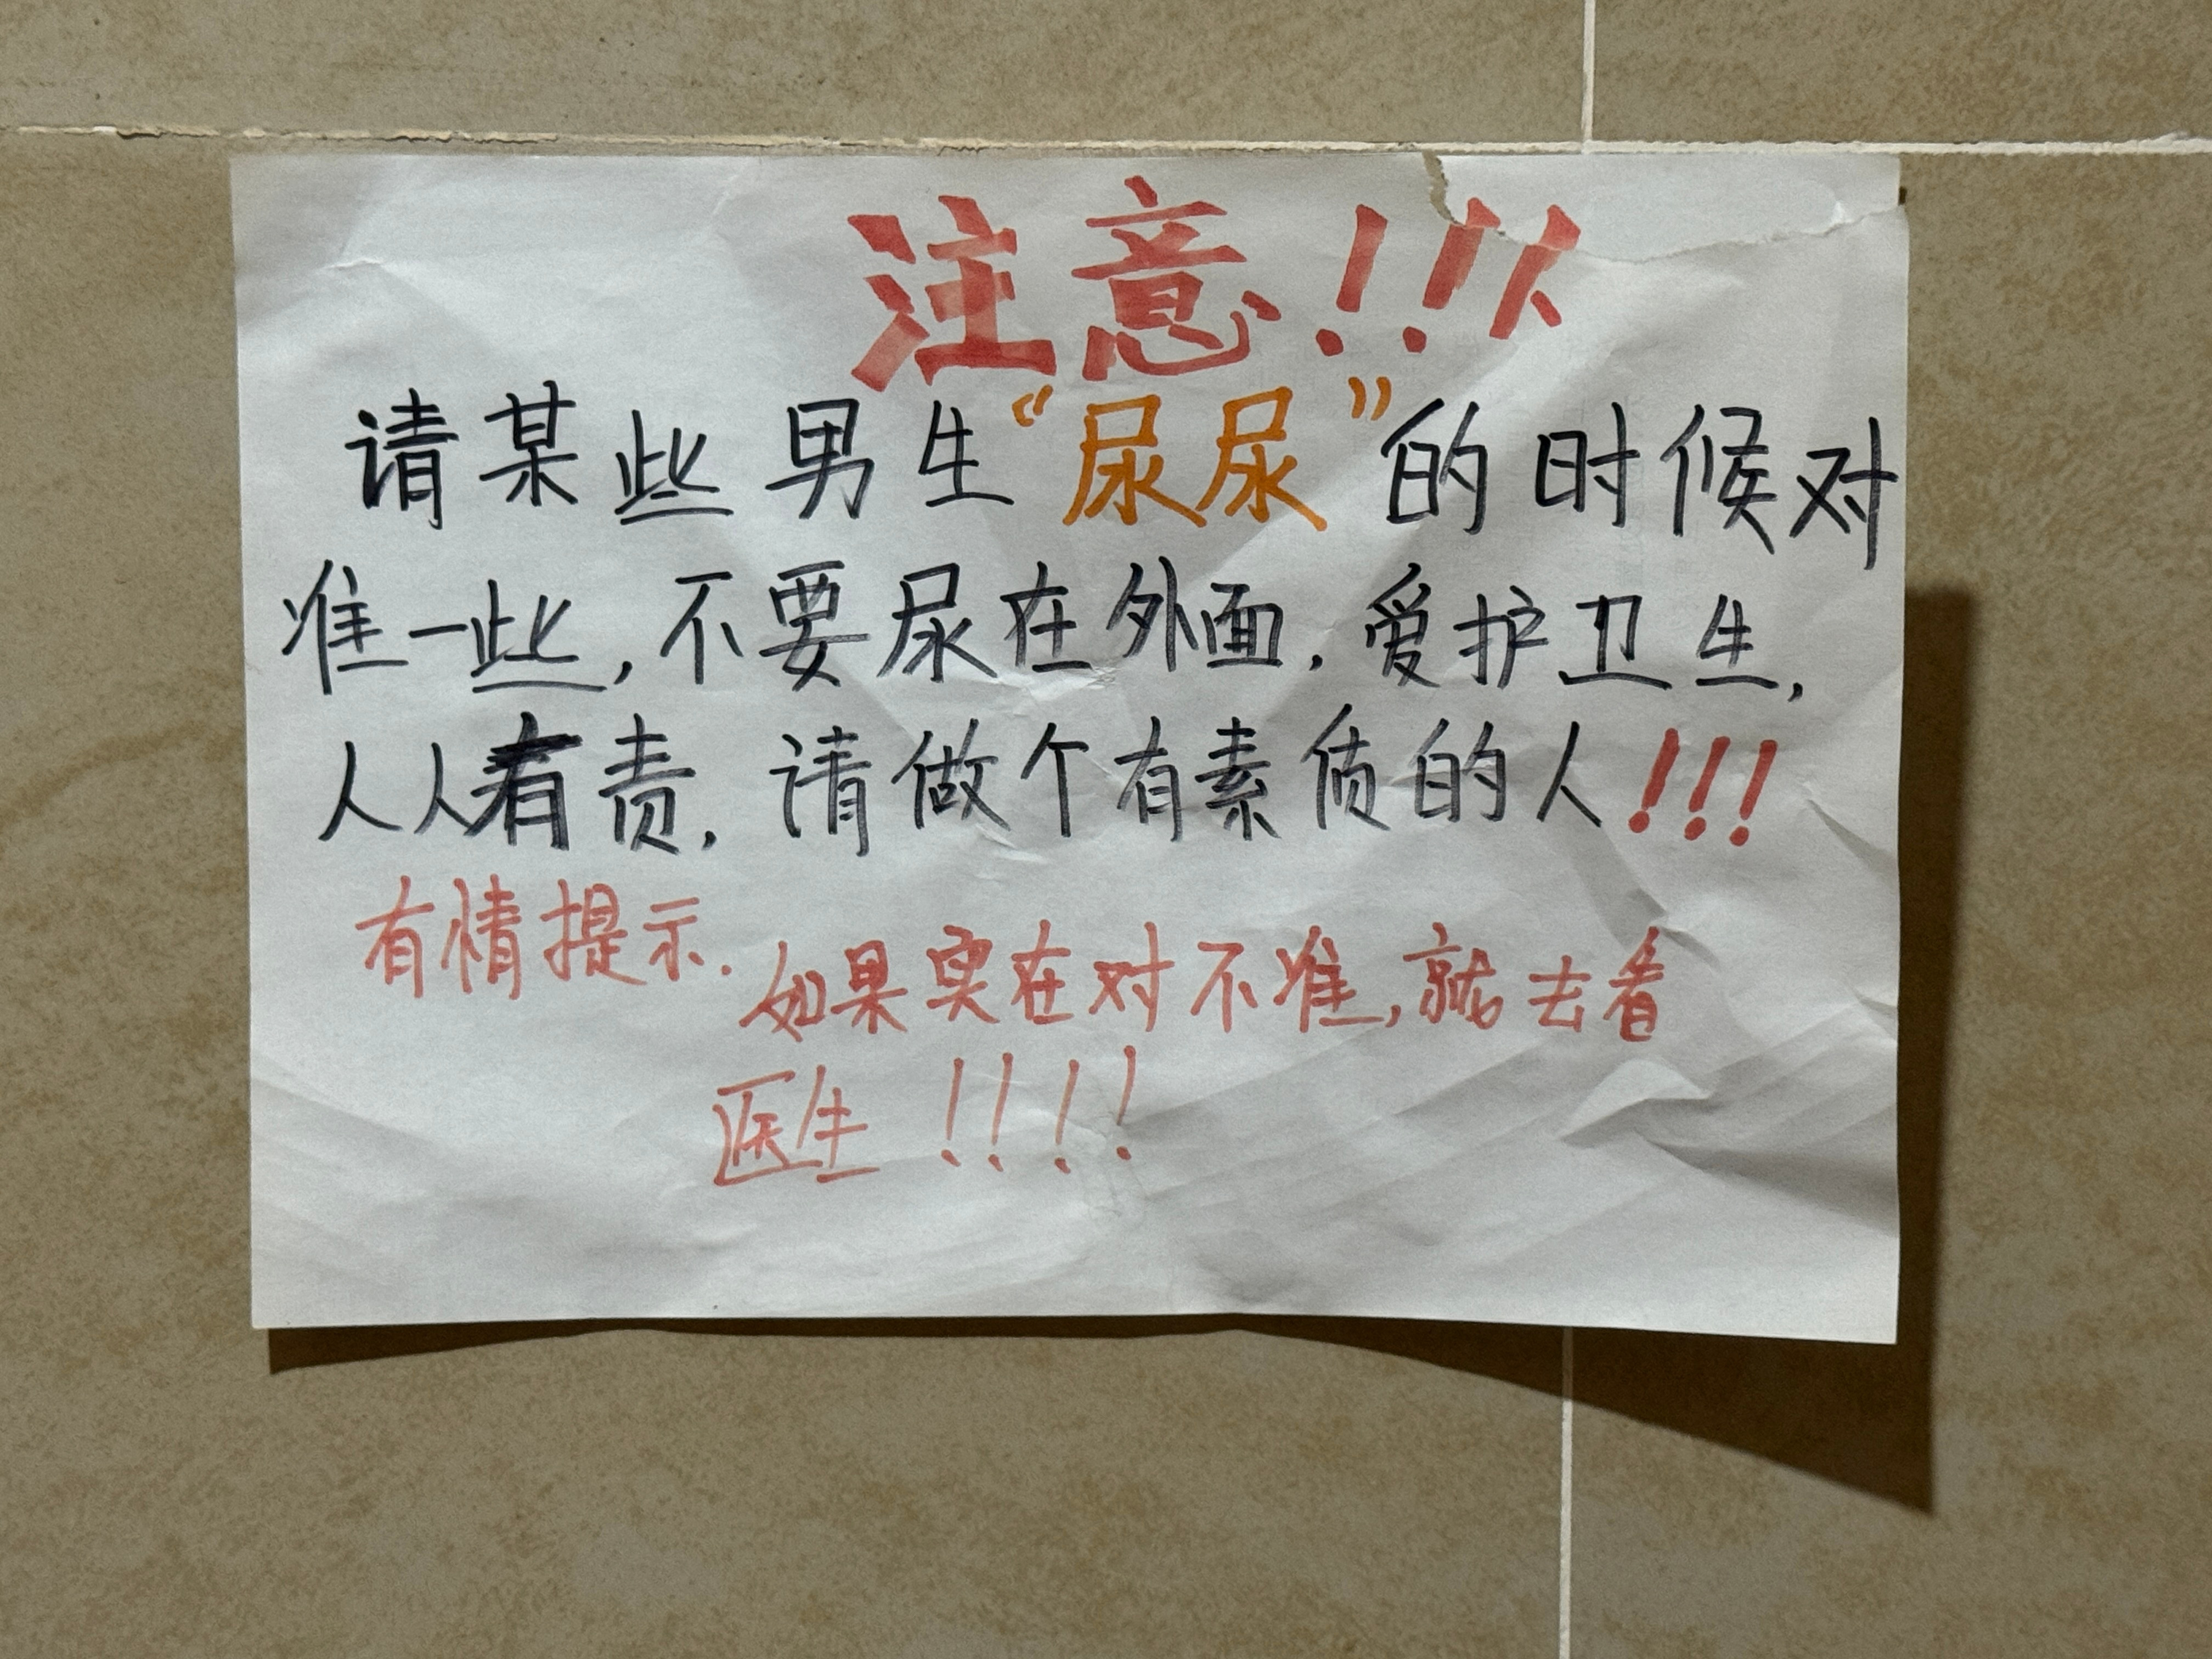 注意!!!
请某些男生“尿尿”的时候对
准一些,不要尿在外面.爱护卫生,
人人有责.请做个有素质的人!!!
有情提示.
如果实在对不准,就去看
医生!!!!